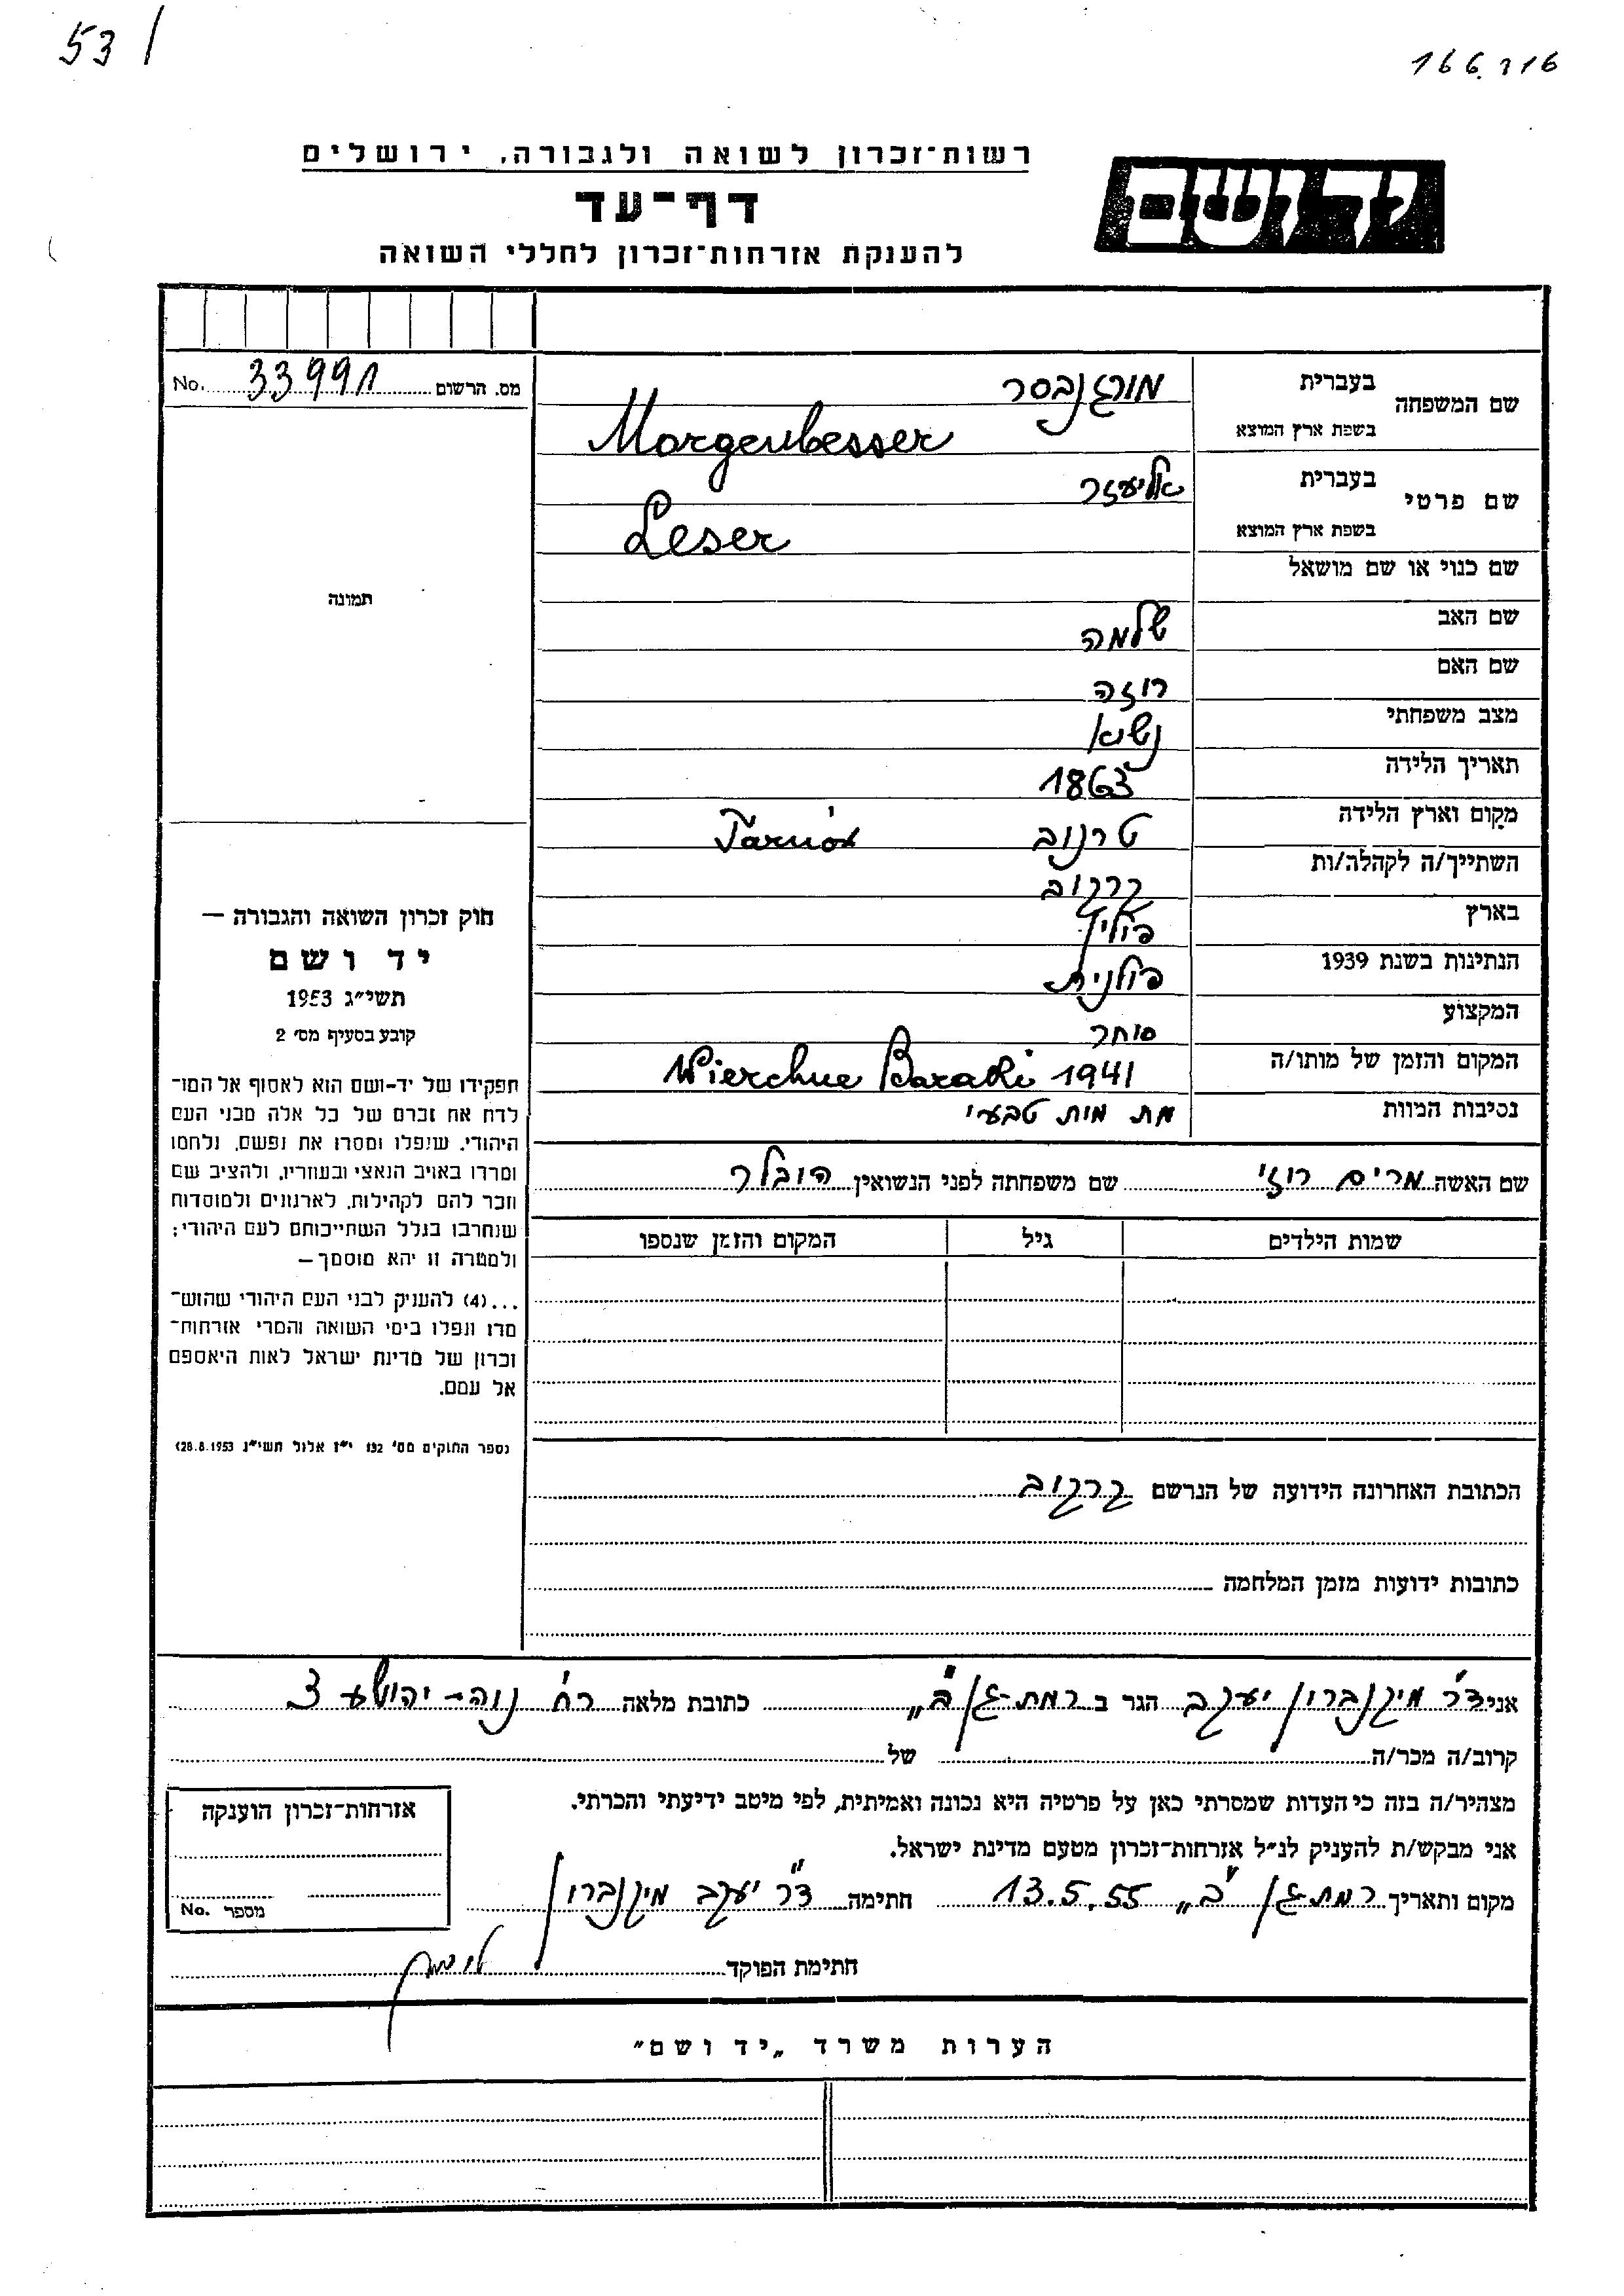 53/
166.216
רשות־זכרון לשואה ולגבורה, ירושלים
יד ושם
דף־עד
להענקת אזרחות־זכרון לחללי השואה
שם המשפחה בעברית מורגנבסר
בשפת ארץ המוצא Morgenbesser
שם פרטי בעברית אליעזר
בשפת ארץ המוצא Leser
שם כנוי או שם מושאל
שם האב שלמה
שם האם רוזה
מצב משפחתי נשוא
תאריך הלידה 1863
מקום וארץ הלידה טרנוב Tarnów
השתייך/ה לקהלה/ות קרקוב
בארץ פולין
הנתינות בשנת 1939 פולנית
המקצוע סוחר
המקום והזמן של מותו/ה 1941
נסיבות המוות מת מות טבעי
שם האשה מרים רוזי שם משפחתה לפני הנשואין הובלר
שמות הילדים גיל המקום והזמן שנספו
הכתובת האחרונה הידועה של הנרשם קרקוב
כתובות ידועות מזמן המלחמה
מס. הרשום 33991 No.
תמונה
חוק זכרון השואה והגבורה —
יד ושם
תשי״ג 1953
קובע בסעיף מס׳ 2
תפקידו של יד־ושם הוא לאסוף אל המו־
לדת את זכרם של כל אלה מבני העם
היהודי, שנפלו ומסרו את נפשם, נלחמו
ומרדו באויב הנאצי ובעוזריו, ולהציב שם
וזכר להם לקהילות, לארגונים ולמוסדות
שנחרבו בגלל השתייכותם לעם היהודי;
ולמטרה זו יהא מוסמך —
...(4) להעניק לבני העם היהודי שהוש־
מדו ונפלו בימי השואה והמרי אזרחות־
זכרון של מדינת ישראל לאות היאספם
אל עמם.
(ספר החוקים מס׳ 132 י״ז אלול תשי״ג 28.8.1953)
אני ד״ר מיקנברון יעקב הגר ב רמת־גן „ב״ כתובת מלאה רח׳ נוה־יהושע 3
קרוב/ה מכר/ה של
מצהיר/ה בזה כי העדות שמסרתי כאן על פרטיה היא נכונה ואמיתית, לפי מיטב ידיעתי והכרתי.
אני מבקש/ת להעניק לנ״ל אזרחות־זכרון מטעם מדינת ישראל.
מקום ותאריך רמת גן „ב״ 13.5.55 חתימה ד״ר יעקב מיקנברון
חתימת הפוקד
אזרחות־זכרון הוענקה
מספר No.
הערות משרד „יד ושם״